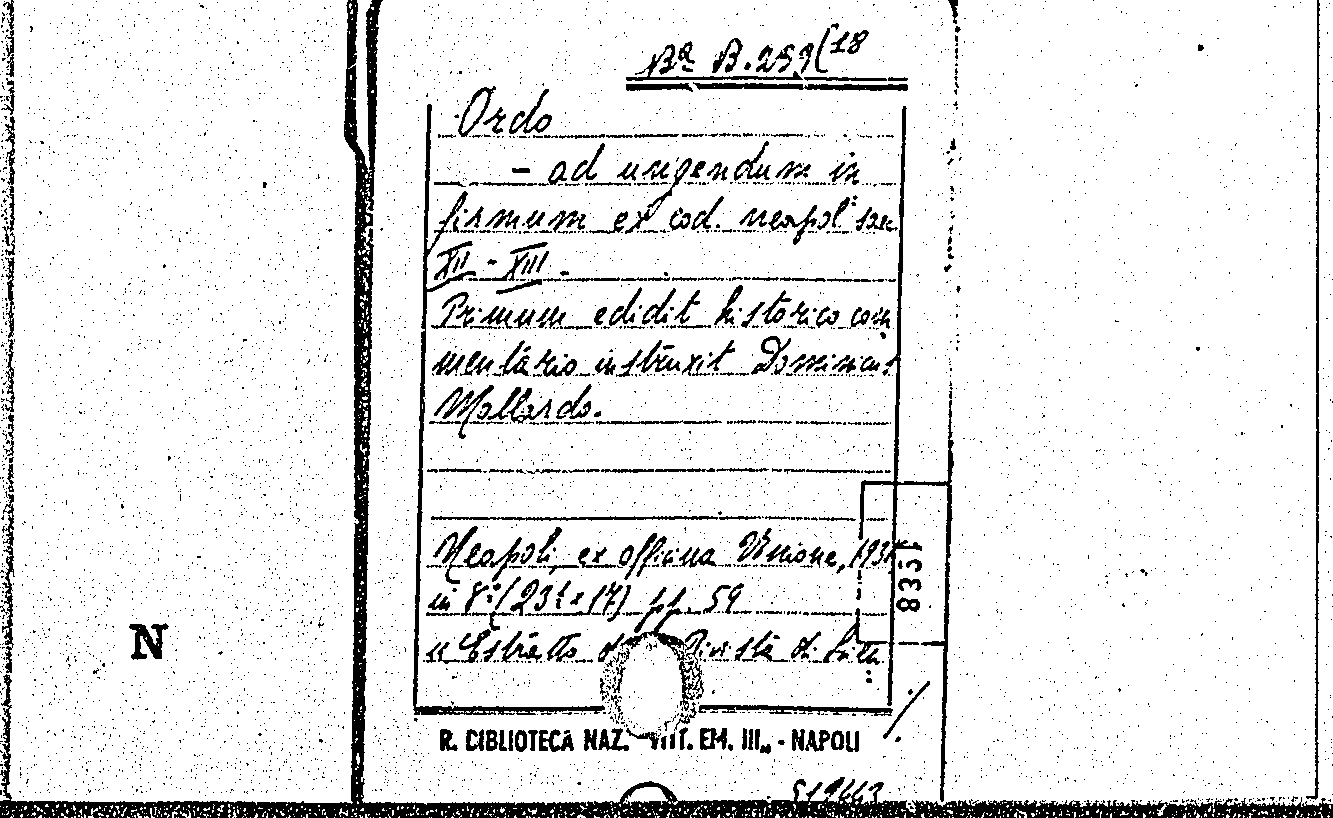 Bª B. 259(18
Ordo
- ad ungendum in
firmum ex cod. neapol. saec
XII - XIII.
Primum edidit historico com
mentario instruxit Dominicus
Mallardo.
Neapoli, ex officina Unione,
in 8º (23 x 17) pp. 59
Estratto Rivista di
8351
N
R. BIBLIOTECA NAZ. "VITT. EM. III" - NAPOLI